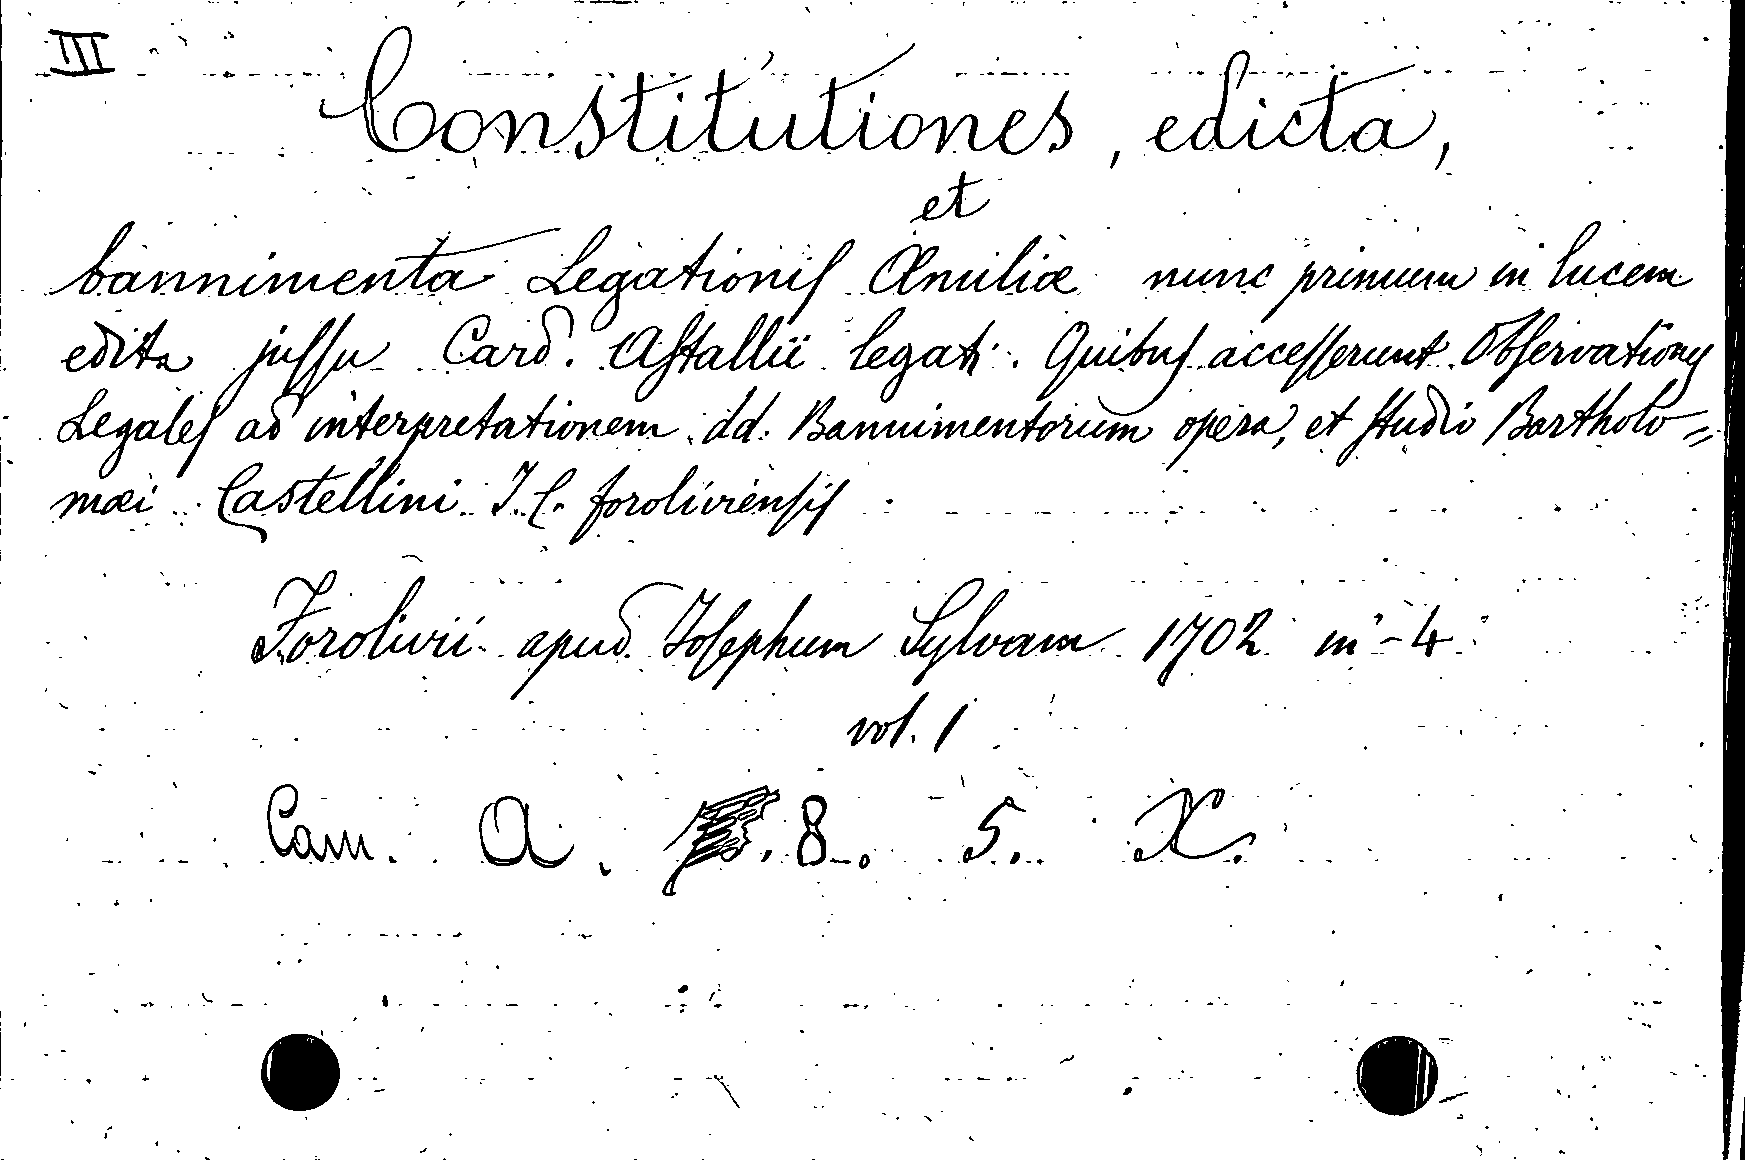 III
Constitutiones, edicta,
et
bannimenta Legationis Æmiliæ nunc primum in lucem
edita jussu Card. Astallii legati. Quibus accesserunt Observationes
Legales ad interpretationem dd. Bannimentorum opera, et studio Bartholo=
mæi Castellini J. C. foroliviensis
Forolivii apud Josephum Sylvam 1702 in-4
vol. 1
Cam. A. 8. 5. X.